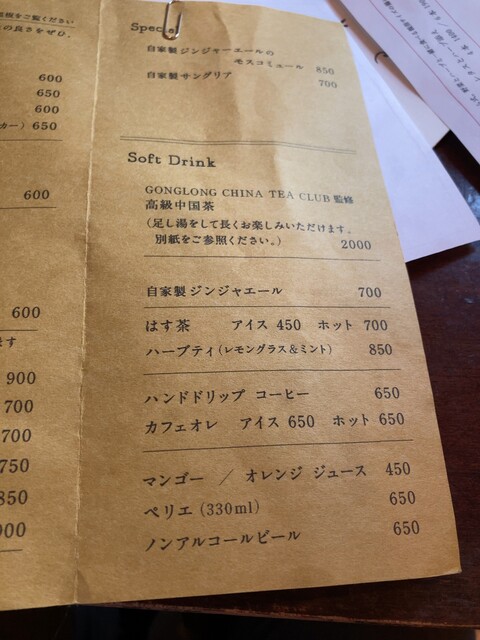 覧ください
の良さをぜひ、
600
650
600
カー) 650
600
600
ます
900
700
700
750
850
900
Spec
自家製ジンジャーエールの
モスコミュール 850
自家製サングリア 700
Soft Drink
GONGLONG CHINA TEA CLUB 監修
高級中国茶
(足し湯をして長くお楽しみいただけます。
別紙をご参照ください。) 2000
自家製ジンジャエール 700
はす茶 アイス 450 ホット 700
ハーブティ(レモングラス&ミント) 850
ハンドドリップ コーヒー 650
カフェオレ アイス 650 ホット 650
マンゴー / オレンジ ジュース 450
ペリエ (330ml) 650
ノンアルコールビール 650